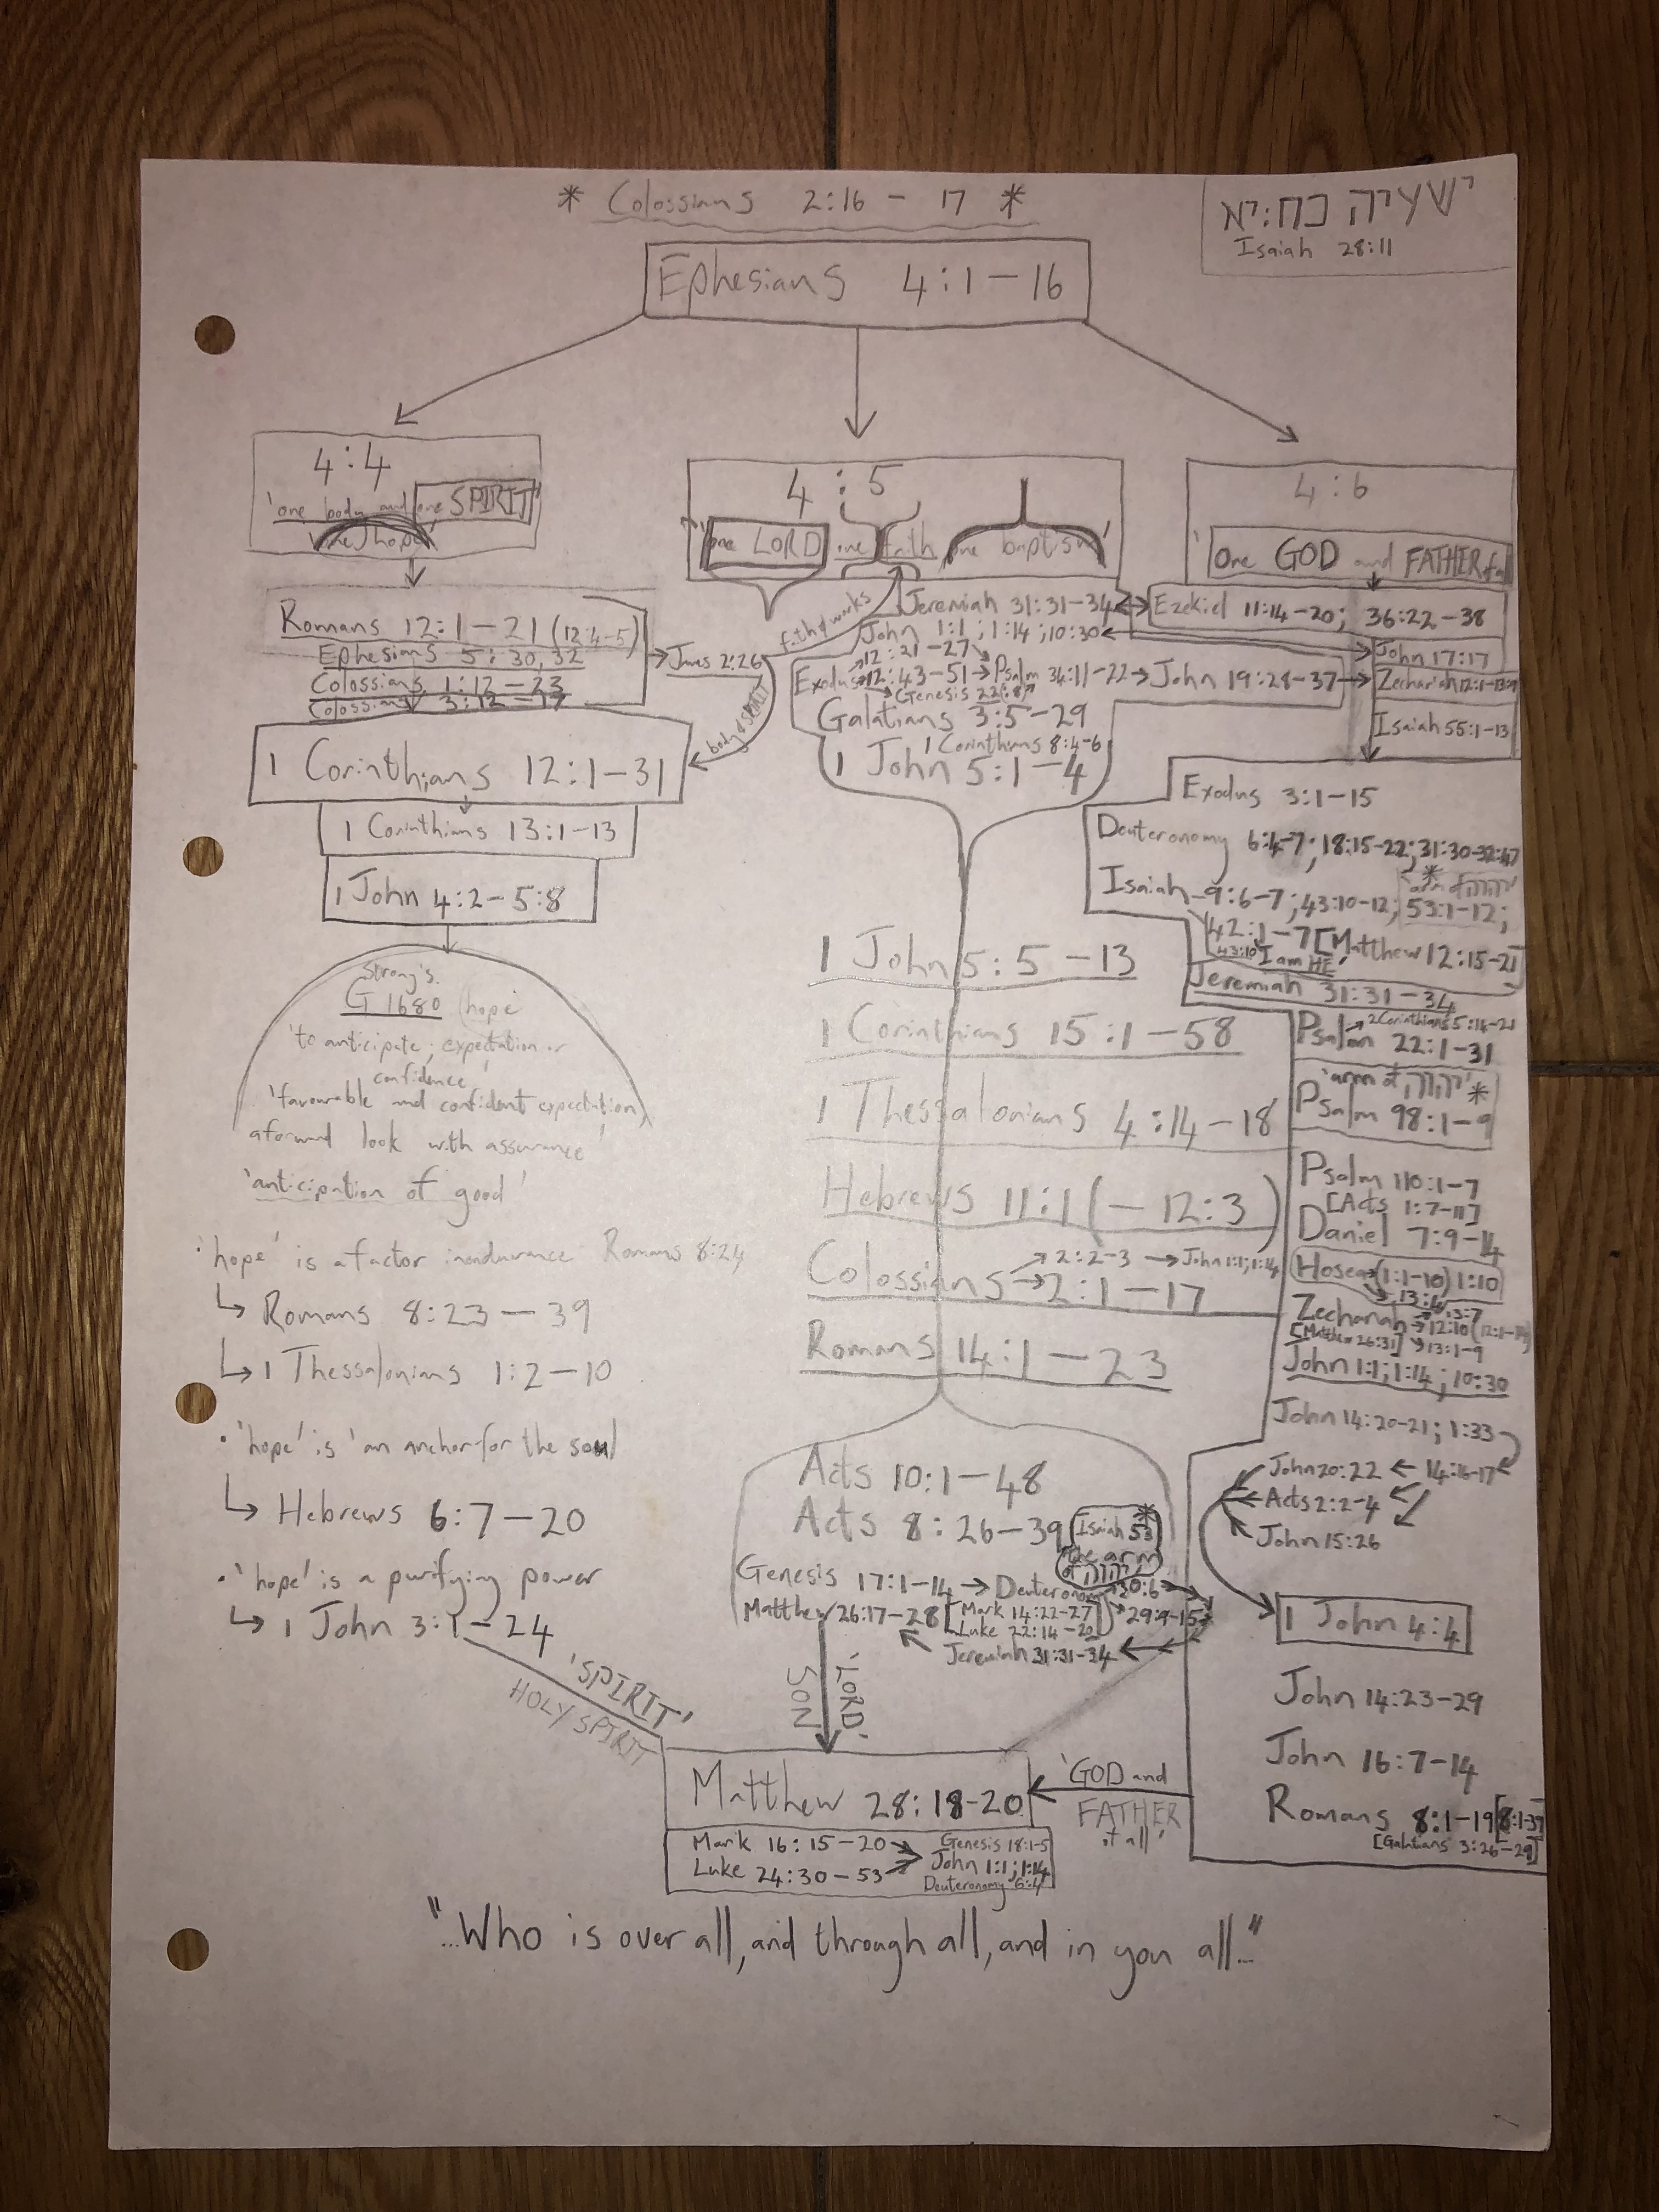 * Colossians 2:16 - 17 *
ישעיה כח:יא
Isaiah 28:11
Ephesians 4:1-16
4:4
'one body and one SPIRIT'
'one hope'
Romans 12:1-21 (12:4-5)
Ephesians 5:30,32
Colossians 1:12-23
Colossians 3:12-17
James 2:26
faith & works
body & SPIRIT
1 Corinthians 12:1-31
1 Corinthians 13:1-13
1 John 4:2-5:8
Strong's
G1680 'hope'
'to anticipate; expectation or
confidence'
'favourable and confident expectation,
a forward look with assurance'
'anticipation of good'
• 'hope' is a factor in endurance Romans 8:24
↳ Romans 8:23-39
↳ 1 Thessalonians 1:2-10
• 'hope' is 'an anchor for the soul
↳ Hebrews 6:7-20
• 'hope' is a purifying power
↳ 1 John 3:1-24
'SPIRIT'
HOLY SPIRIT
4:5
'one LORD, one faith, one baptism'
Jeremiah 31:31-34
John 1:1; 1:14; 10:30
Exodus 12:21-27
12:43-51 → Psalm 34:11-22 → John 19:28-37 →
Genesis 22(:8)
Galatians 3:5-29
1 Corinthians 8:4-6
1 John 5:1-4
1 John 5:5-13
1 Corinthians 15:1-58
1 Thessalonians 4:14-18
Hebrews 11:1 (-12:3)
Colossians → 2:2-3 → John 1:1; 1:14
→ 2:1-17
Romans 14:1-23
Acts 10:1-48
Acts 8:26-39 Isaiah 53 *
'the arm
of יהוה'
Genesis 17:1-14 → Deuteronomy 30:6
Matthew 26:17-28 [Mark 14:22-27
Luke 22:14-20] 29:9-15
Jeremiah 31:31-34
'LORD'
SON
4:6
'One GOD and FATHER of all
Ezekiel 11:14-20; 36:22-38
John 17:17
Zechariah 12:1-13:9
Isaiah 55:1-13
Exodus 3:1-15
Deuteronomy 6:4-7; 18:15-22; 31:30-32:47
Isaiah 9:6-7; 43:10-12; 53:1-12;
* 'arm of יהוה'
42:1-7 [Matthew 12:15-21]
43:10 'I am HE'
Jeremiah 31:31-34
2 Corinthians 5:14-21
Psalm 22:1-31
'arm of יהוה' *
Psalm 98:1-9
Psalm 110:1-7
[Acts 1:7-11]
Daniel 7:9-14
Hosea (1:1-10) 1:10
13:4
Zechariah → 12:10 (12:1-14)
13:7
[Matthew 26:31] 13:1-9
John 1:1; 1:14; 10:30
John 14:20-21; 1:33
John 20:22 ← 14:16-17
Acts 2:2-4
John 15:26
1 John 4:4
John 14:23-29
John 16:7-14
Romans 8:1-19 [8:1-39]
[Galatians 3:26-29]
'GOD and
FATHER
of all'
Matthew 28:18-20
Mark 16:15-20
Luke 24:30-53
Genesis 18:1-5
John 1:1; 1:14
Deuteronomy 6:4
"...Who is over all, and through all, and in you all..."